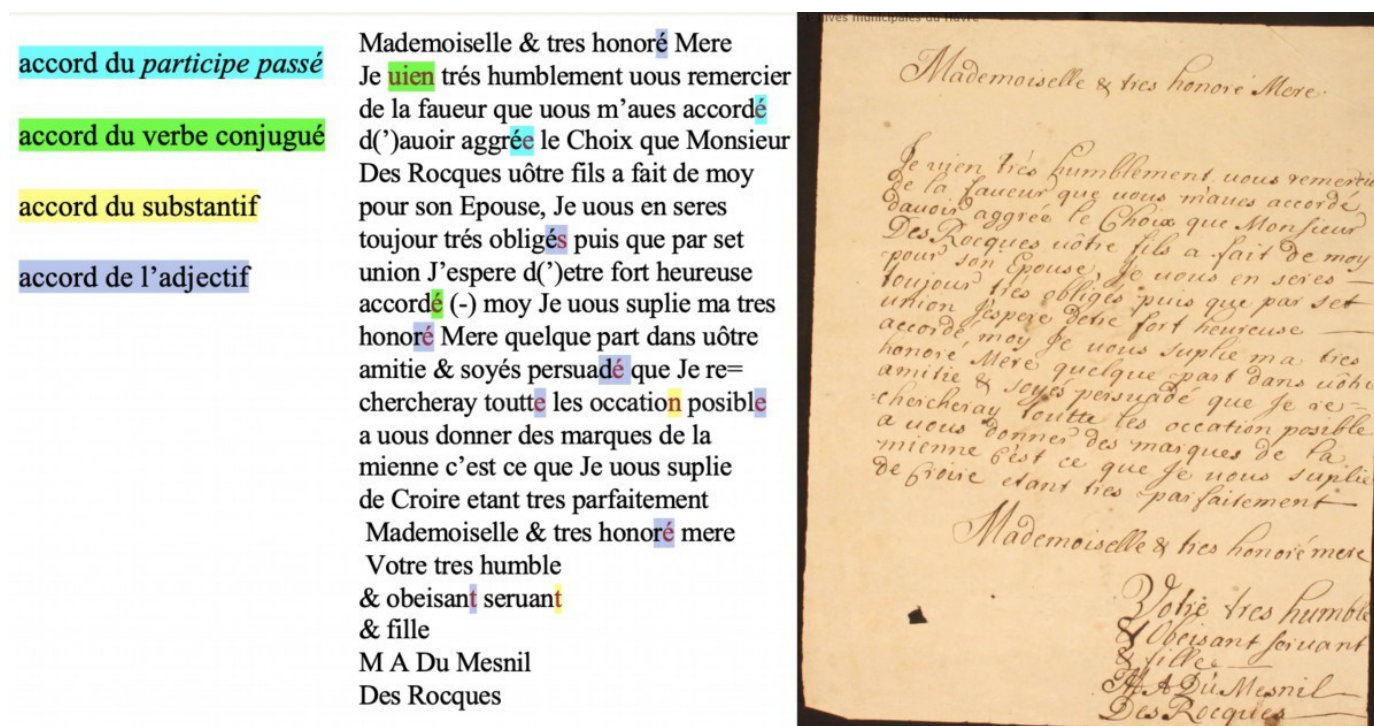 accord du participe passé
accord du verbe conjugué
accord du substantif
accord de l'adjectif
Mademoiselle & tres honoré Mere
Je uien trés humblement uous remercier
de la faueur que uous m'aues accordé
d(')auoir aggrée le Choix que Monsieur
Des Rocques uôtre fils a fait de moy
pour son Epouse, Je uous en seres
toujour trés obligés puis que par set
union J'espere d(')etre fort heureuse
accordé (-) moy Je uous suplie ma tres
honoré Mere quelque part dans uôtre
amitie & soyés persuadé que Je re=
chercheray toutte les occation posible
a uous donner des marques de la
mienne c'est ce que Je uous suplie
de Croire etant tres parfaitement
Mademoiselle & tres honoré mere
Votre tres humble
& obeisant seruant
& fille
M A Du Mesnil
Des Rocques
ives municipales du Havre
Mademoiselle & tres honoré Mere.
Je uien trés humblement uous remercie
de la faueur que uous m'aues accordé
dauoir aggrée le Choix que Monsieur
Des Rocques uôtre fils a fait de moy
pour son Epouse, Je uous en seres
toujour trés obligés puis que par set
union J'espere detre fort heureuse
accordé moy Je uous suplie ma tres
honoré Mere quelque part dans uôtre
amitie & soyés persuadé que Je re=
=chercheray toutte les occation posible
a uous donner des marques de la
mienne c'est ce que Je uous suplie
de Croire etant tres parfaitement
Mademoiselle & tres honoré mere
Votre tres humble
& Obeisant seruant
& fille
M A Du Mesnil
Des Rocques